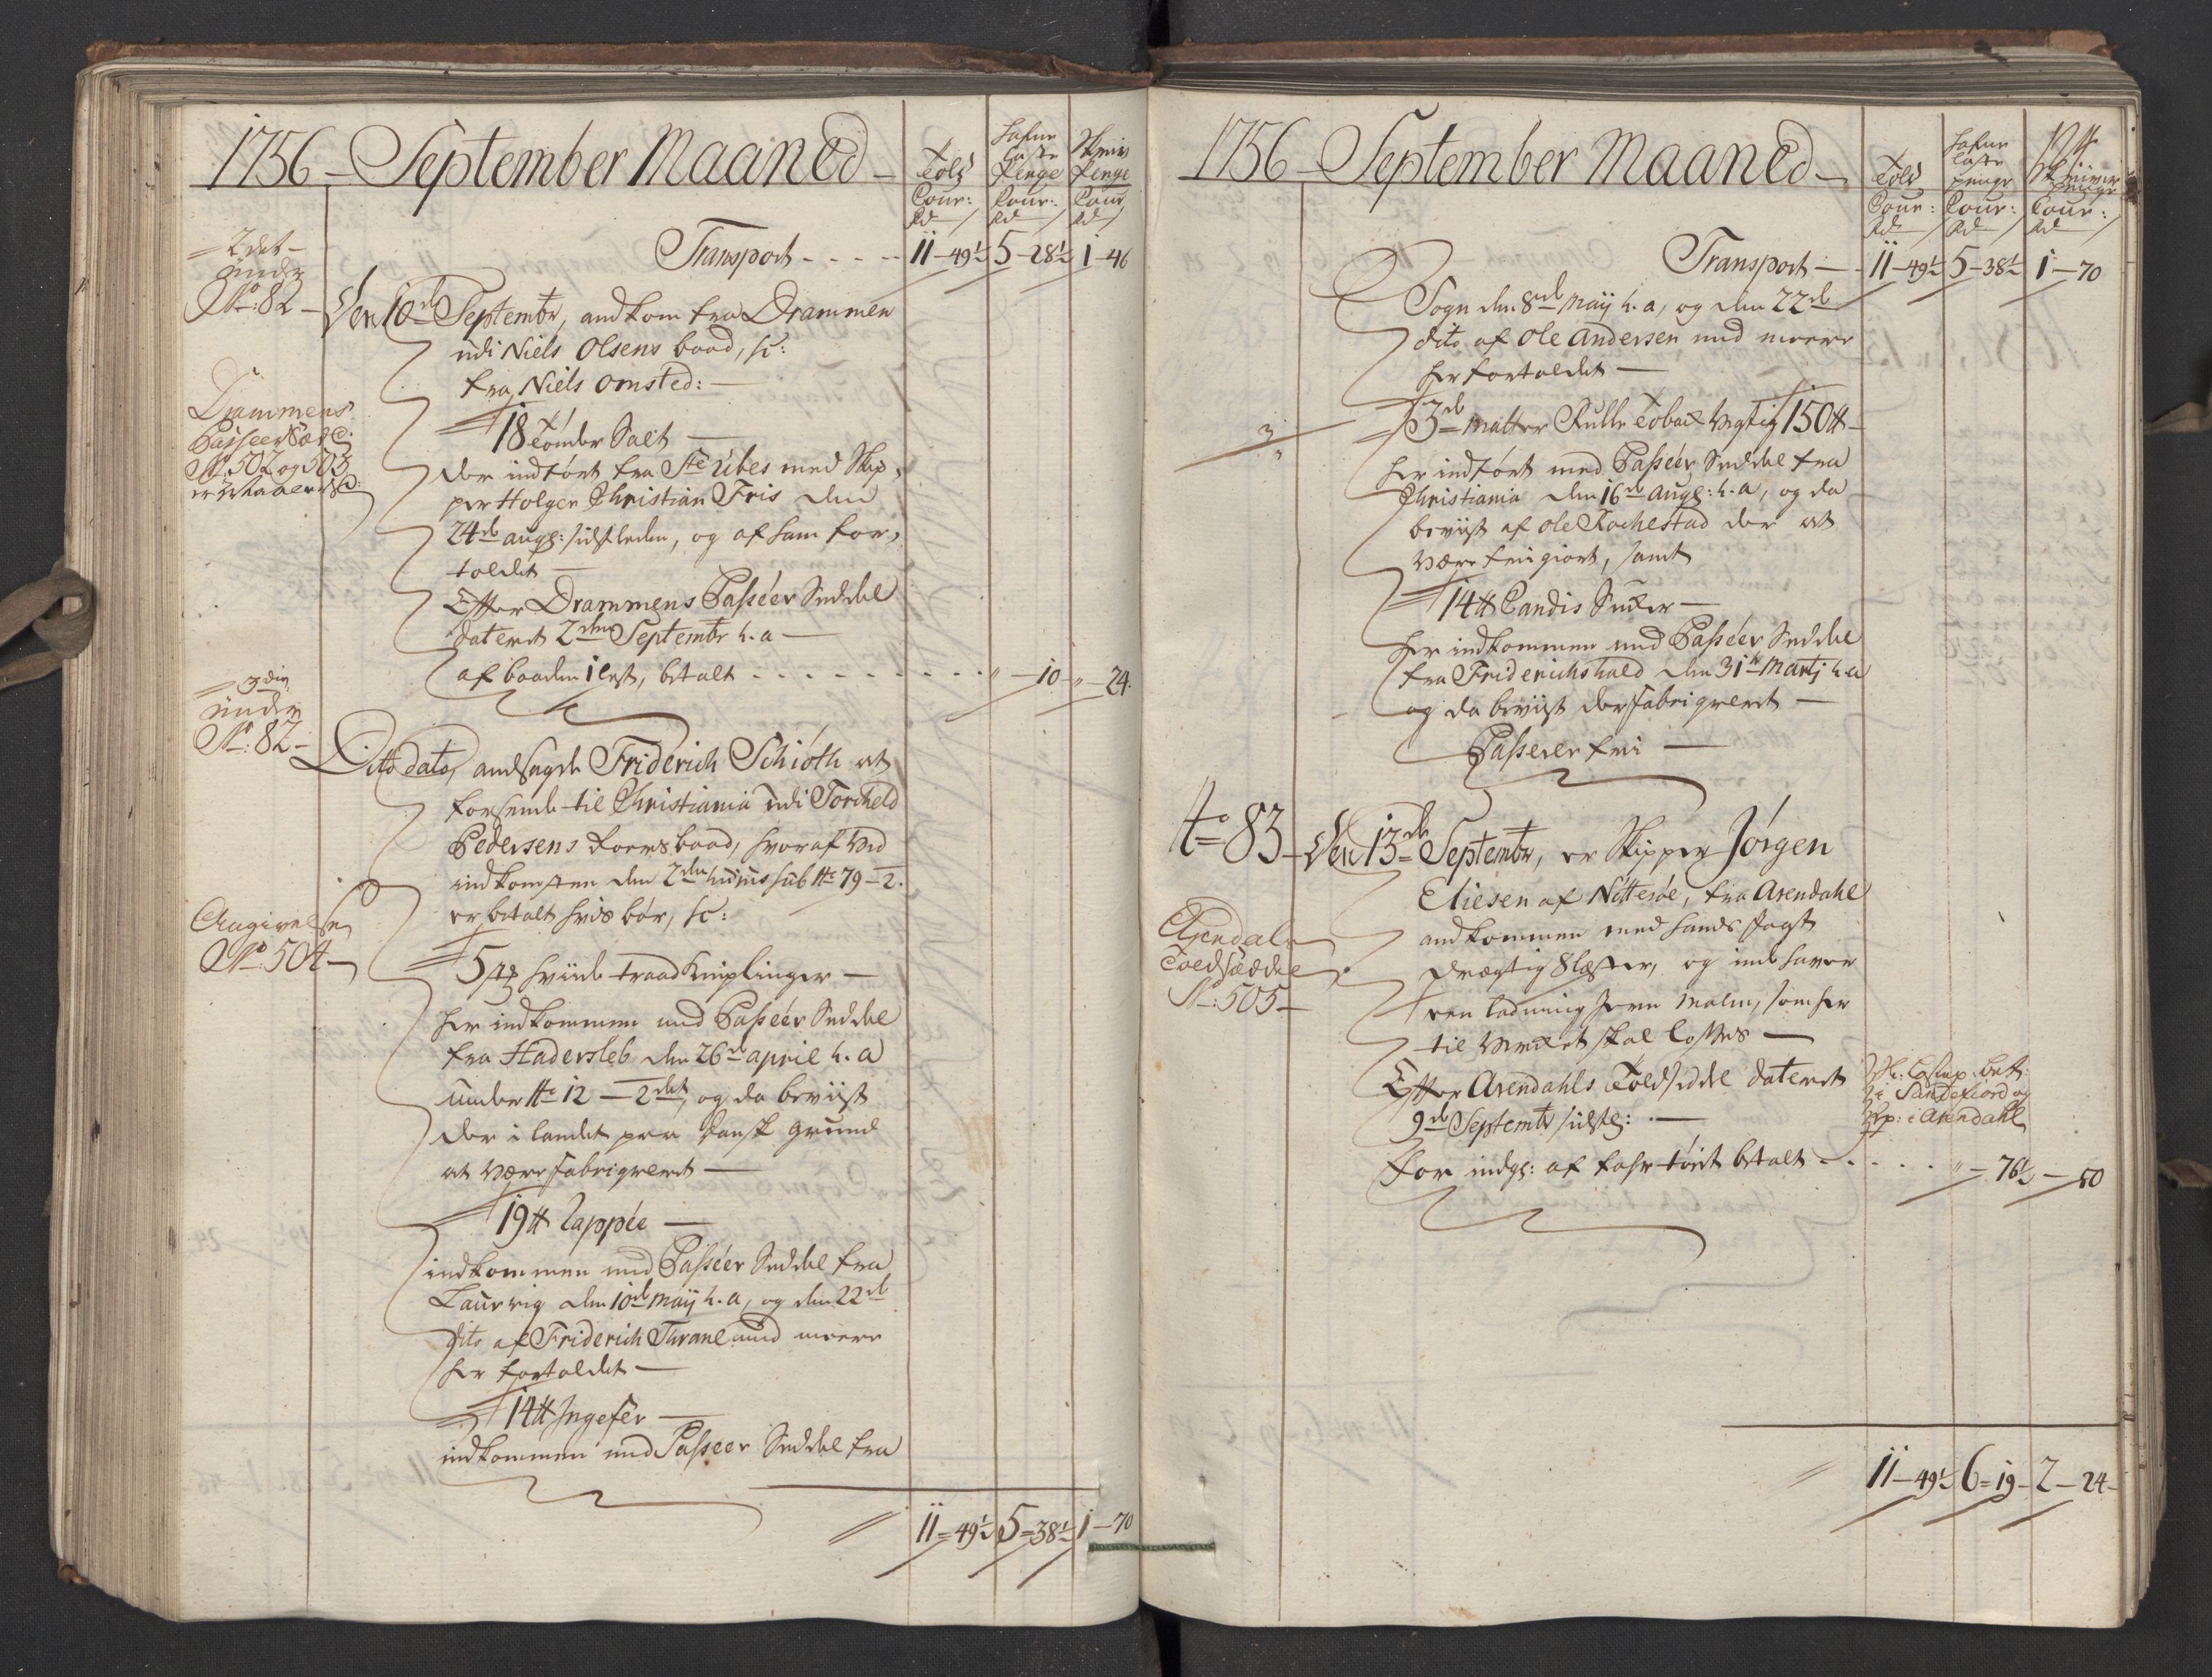 1756 – September Maaned –
Told
Cour:
Rd /
Hafne
Laste
Penge
Cour:
Rd /
Skriv
Penge
Cour
Rd /
Transport - - - - 11 – 49½ 5 – 28½ 1 – 46
2det
under
No: 82 –
Den 10de Septembr, andkom fra Drammen
udi Niels Olsens baad, sc:
fra Niels Omsted: –
18 Tønder Salt –
Drammens
Passeer Sædl:
No 502 og 503
der indført fra Ste Ubes med Skip,
per Holger Christian Fris den
24de augs: sidstleden, og af ham for,
toldet –
Efter Drammens Passéer Seddel
dateret 2den Septembr h. a –
af baaden 1 lest, betalt - - - - - - - - - " – 10 " – 24.
3die
under
No: 82 –
Dito dato, andsagde Friderich Schiøth at
forsende til Christiania udi Torcheld
Pedersens Foers baad, hvoraf ved
indkomsten den 2den hujus sub No 79 – 2.
er betalt hvis bør, sc:
Angivelse
No 504 –
5 ℔ hviide traad Kniplinger –
her indkommen med Passéer Seddel
fra Hadersleb den 26de april h. a
under No 12 – 2det, og da beviist
der i landet paa dansk grund
at være fabriqveret –
19 ℔ Rappée –
indkommen med Passéer Seddel fra
Laurvig den 10de Maij h. a, og den 22de
dito af Friderich Thrane med meere
her fortoldet –
14 ℔ Ingefer –
indkommen med Passeer Seddel fra
11 – 49½ 5 – 38½ 1 – 70
1756 – September Maaned –
Told
Cour:
Rd /
Hafne
Laste
penge
Cour:
Rd /
Skriver
penge
Cour:
Rd /
Transport – - 11 – 49½ 5 – 38½ 1 – 70
Sogn den 8de Maij h. a, og den 22de
dito af Ole Andersen med meere
her fortoldet –
3
3de Matter Rulle Tobax vegtig 150 ℔ –
her indført med Passéer Seddel fra
Christiania den 16de augs: h. a, og da
beviist af Ole Rochestad der at
være frigiort, samt
14 ℔ Candis Sucker –
her indkommen med Passéer Seddel
fra Friderichshald den 31te Martj h. a
og da beviist der fabriqveret –
Passerer fri –
No 83 – Den 13de Septembr, er Skipper Jørgen
Eliesen af Nøtterøe, fra Arendahl
andkommen med hands Jagt
drægtig 8 læster, og inde haver
een ladning Jern Malm, som her
til Verket skal losses –
Arendals
Toldsæddel
No: 505 –
Efter Arendahls Toldseddel dateret
9de Septembr sidstl: –
i Sandefiord og
i Arendahl
For indgl: af fahr tøiet betalt - - - - - " – 76½ – 50
11 – 49½ 6 – 19 – 2 – 24 –